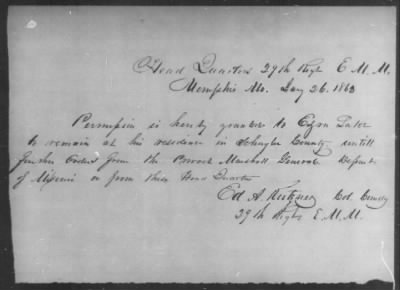 Head Quarters 29th Regt E. M. M.
Memphis Mo. Jany 26. 1863
Permission is hereby granted to
to remain at his residence in Schuyler County untill
further Orders from the Provost Marshall General Depart
of Missouri or from these Head Quarters
Ed A. Kutzner Col Comdg
29th Regt E. M. M.